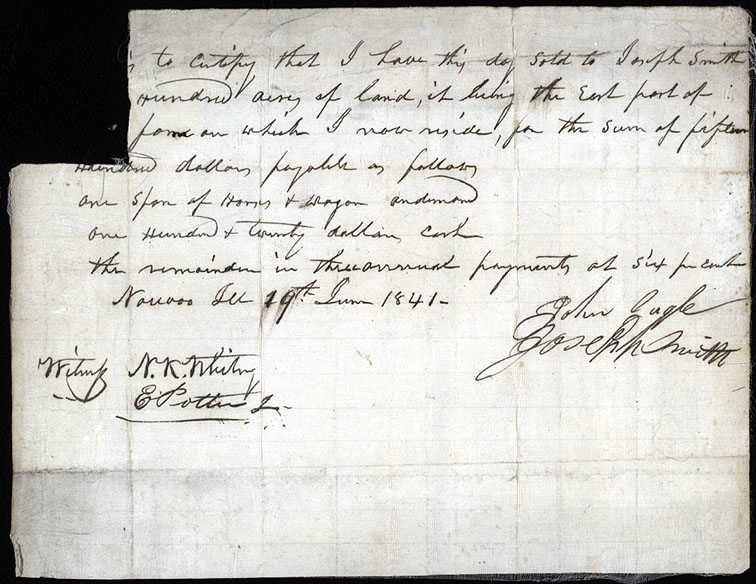 is to certify that I have this day sold to Joseph Smith
Hundred acres of land, it being the East part of
farm on which I now reside, for the sum of fifteen
Hundred dollars payable as follows
one Span of Horses & wagon
one Hundred & twenty dollars cash
the remainder in three annual payments at six pr cent
Nauvoo Ill 19th June 1841-
John Cagle
Joseph Smith
Witness N. K. Whitney
E Potter Jr